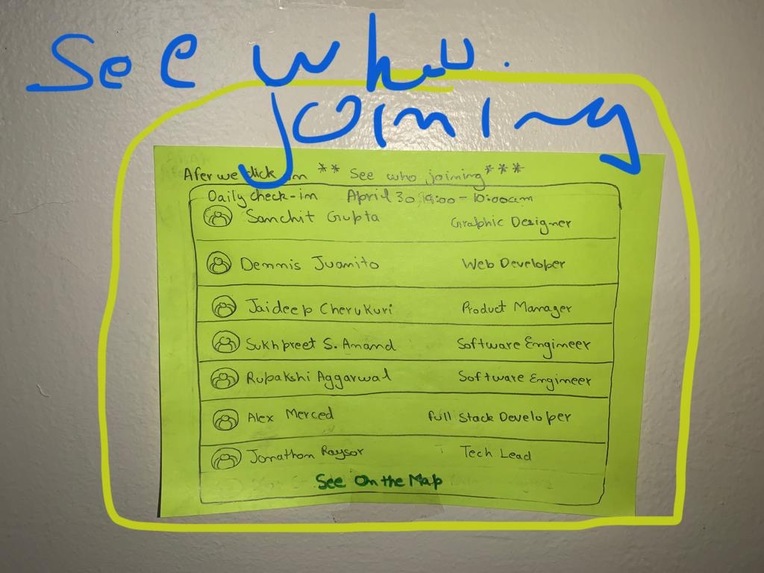 See who
joining
Afer we click on ** See who joining***
Daily check-in April 30, 9:00-10:00am
Sanchit Gupta Graphic Designer
Dennis Juanito Web Developer
Jaideep Cherukuri Product Manager
Sukhpreet S. Anand Software Engineer
Rupakshi Aggarwal Software Engineer
Alex Merced Full Stack Developer
Jonathan Raysor Tech Lead
See On the Map